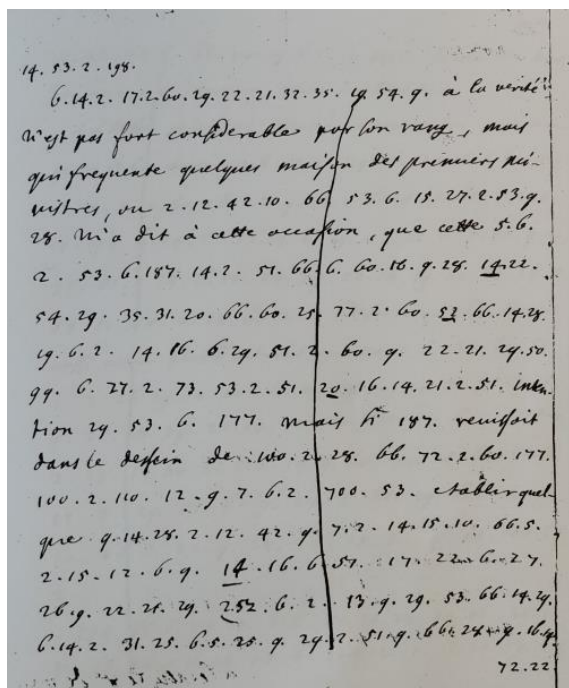 14. 53. 2. 198.
6. 14. 2. 17. 2. 60. 29. 22. 21. 32. 35. 19. 54. 9. à la verité
n'est pas fort considerable par son rang, mais
qui frequente quelques maison des premiers mi-
nistres, ou 2. 12. 42. 10. 66. 53. 6. 15. 27. 2. 53. 9.
28. m'a dit à cette occasion, que cette 5. 6.
2. 53. 6. 187. 14. 2. 51. 66. 6. 60. 16. 9. 28. 14. 22.
54. 29. 35. 31. 20. 66. 60. 25. 77. 2. 60. 52. 66. 14. 28.
19. 6. 2. 14. 16. 6. 29. 51. 2. 60. 9. 22. 21. 29. 50.
99. 6. 27. 2. 73. 53. 2. 51. 20. 16. 14. 21. 2. 51. inten-
tion 29. 53. 6. 177. mais si 187. reussoit
dans le dessein de 100. 2. 28. 66. 72. 2. 60. 177.
100. 2. 110. 12. 9. 7. 6. 2. 700. 53. etablir quel-
que 9. 14. 28. 2. 12. 42. 9. 7. 2. 14. 15. 10. 66. 5.
2. 15. 12. 6. 9. 14. 16. 6. 51. 17. 22. 6. 27.
26. 9. 22. 21. 29. 252. 6. 2. 13. 9. 29. 53. 66. 14. 29.
6. 14. 2. 31. 25. 6. 5. 25. 9. 29. 2. 51. 9. 66. 28. 9. 16. 9.
72. 22